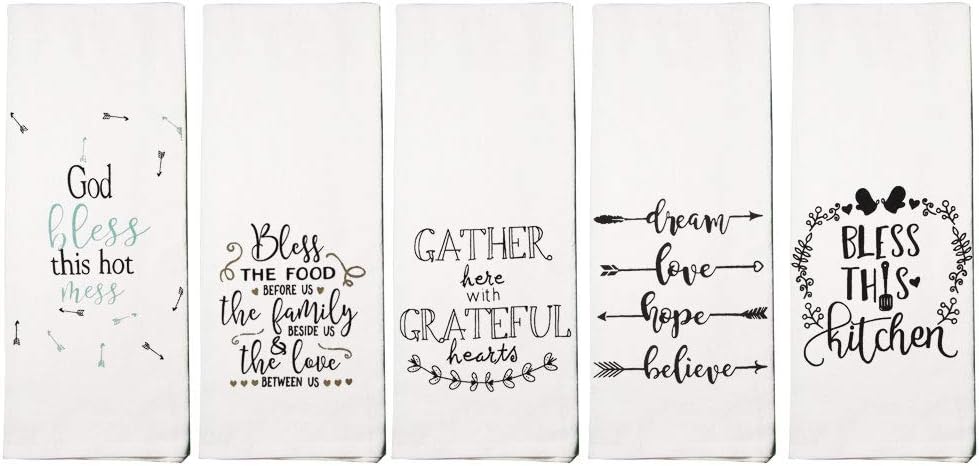 God
bless
this hot
mess
Bless
THE FOOD
BEFORE US
the family
BESIDE US
&
the love
BETWEEN US
GATHER
here
with
GRATEFUL
hearts
dream
love
hope
believe
BLESS
THIS
kitchen